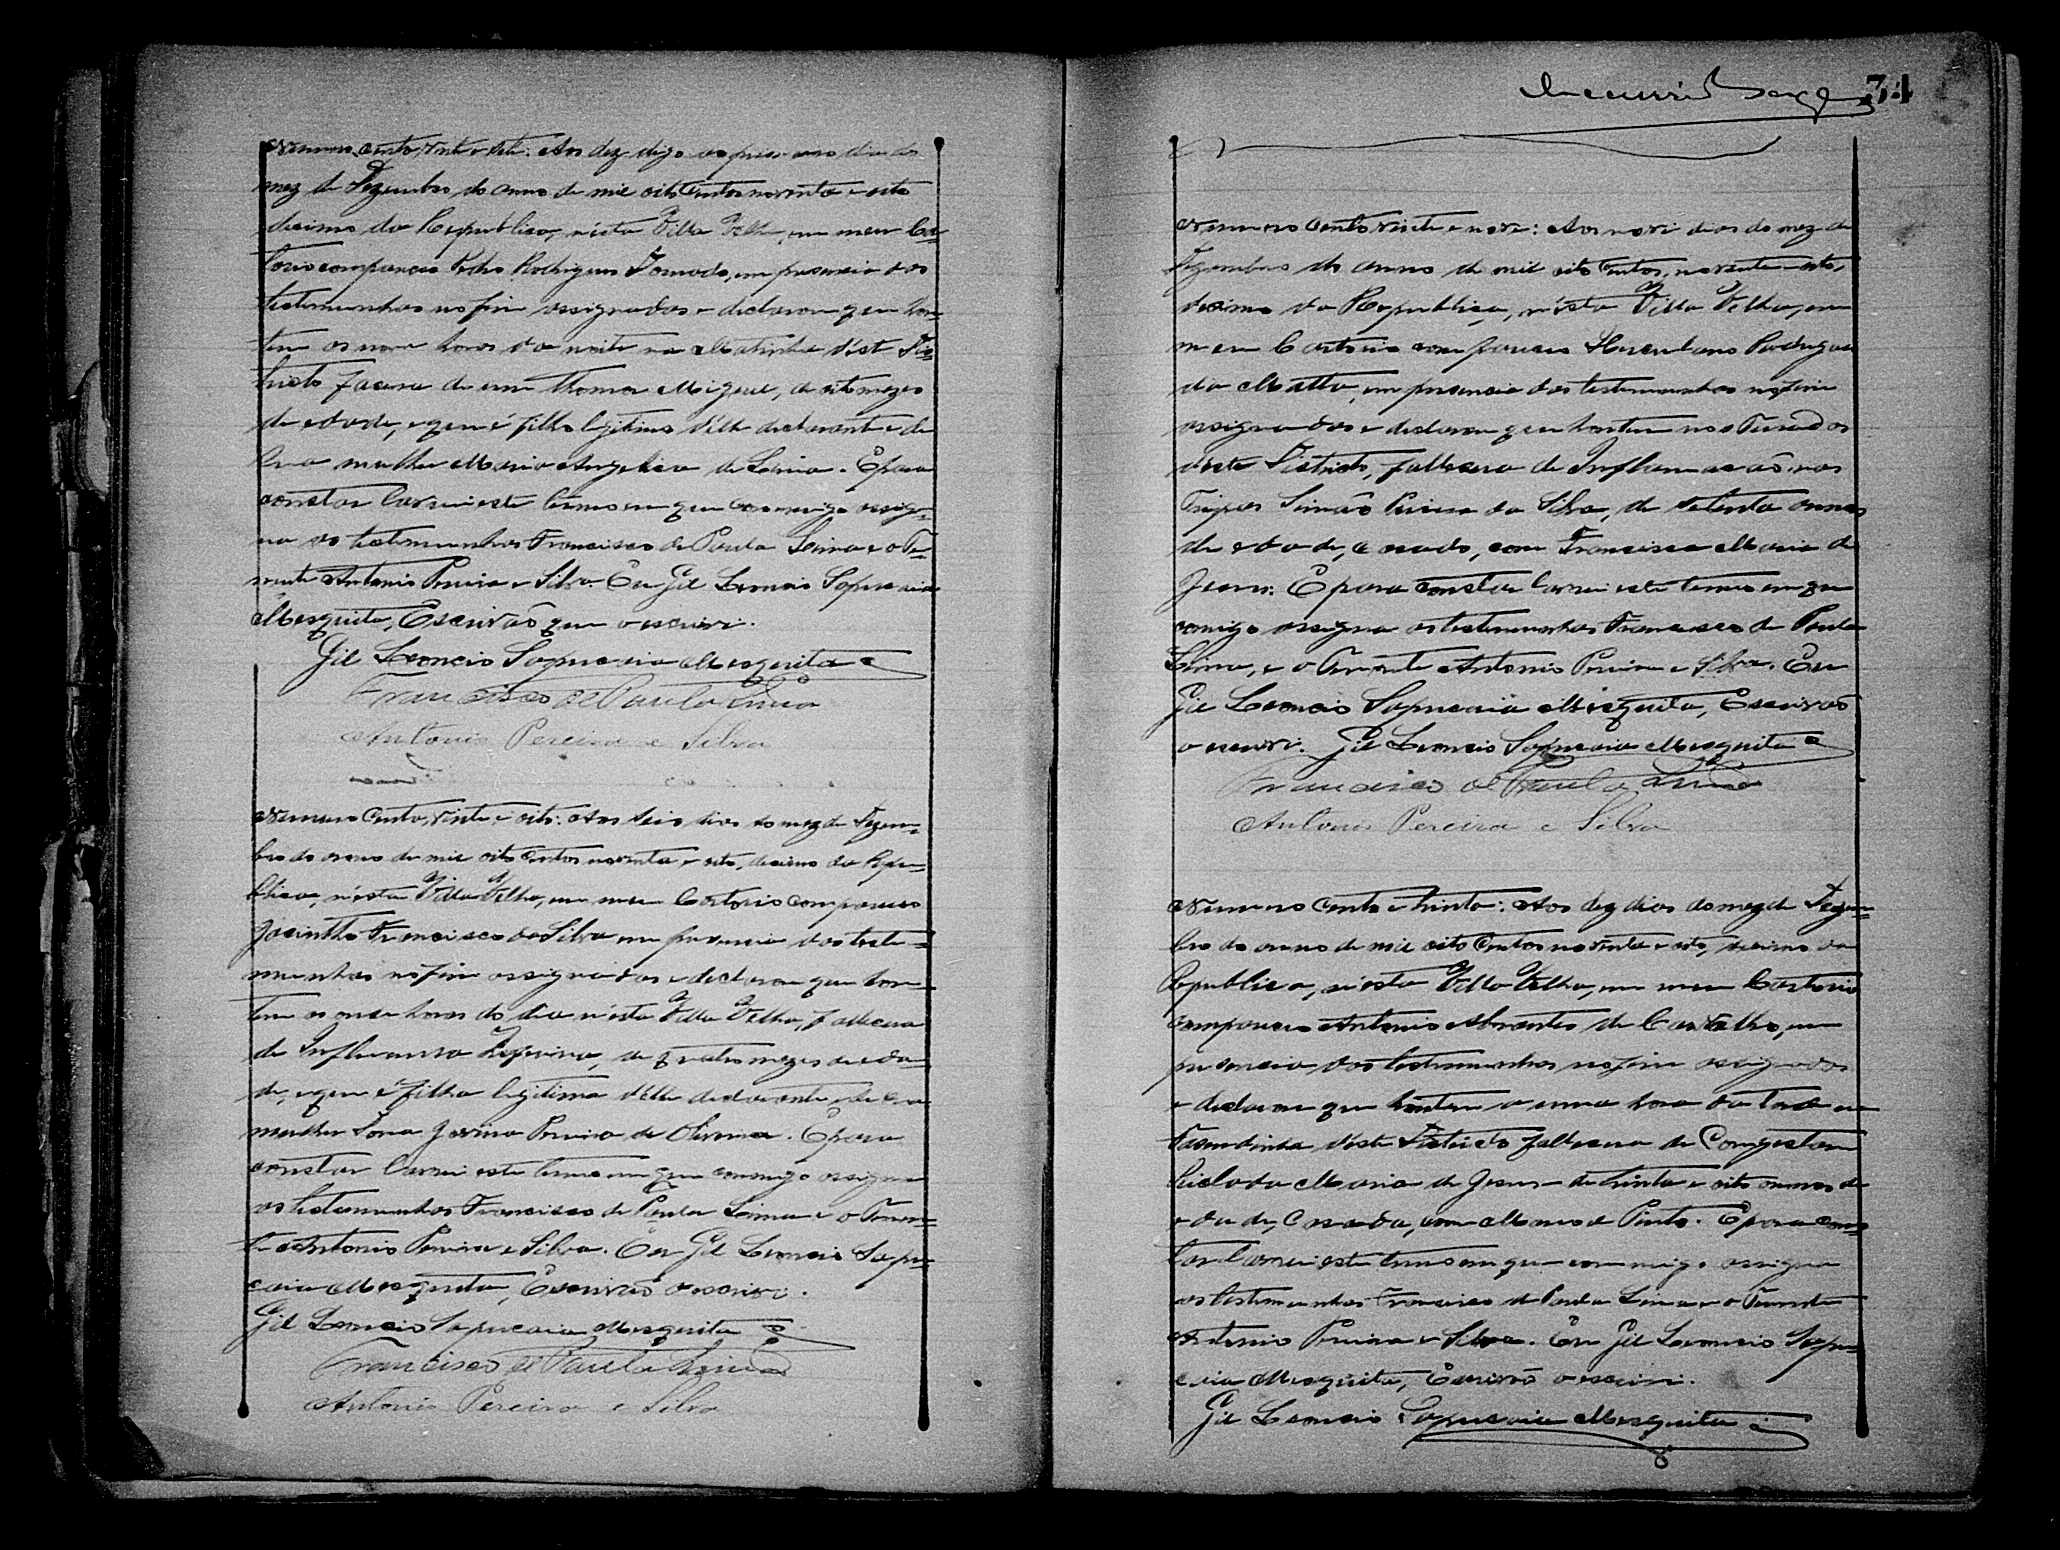 Numero cento, vinte e sete: Aos dez digo ao primeiro dia do
mez de Dezembro do anno de mil oito centos noventa e oito
decimo da Republica, n'esta Villa Velha, em meu Car-
torio compareceo Pedro Rodrigues Dourado, em presencia das
testemunhas no fim assignadas e declarou que hon-
tem as nove horas da noite na Matinha d'êste Dis-
tricto faleceu de um Miguel, de oito mezes
de edade, e que é filho legitimo d'êlle declarante e de
sua mulher Maria Angelica de Lima. E para
constar lavrei este termo em que commigo assig-
na as testemunhas Francisco de Paula Lima e o Te-
nente Antonio Pereira e Silva. Eu Gil Leoncio Sapucaia
Mesquita, Escrivão que o escrevi.
Gil Leoncio Sapucaia Mesquita
Francisco de Paula Lima
Antonio Pereira e Silva
Numero Cento, vinte e oito: Aos seis dias do mez de Dezem-
bro do anno de mil oito centos noventa e oito, decimo da Repu-
blica, n'esta Villa Velha, em meu Cartorio compareceo
Jacintho Francisco da Silva em presencia das teste-
munhas no fim assignadas e declarou que hon-
tem as onze horas do dia n'esta Villa Velha, fallecera
de Influenza Zeferina, de quatro mezes de eda-
de, e que é filha legitima d'êlle declarante e de sua
mulher Anna Jovina Pereira de Oliveira. E para
constar lavrei este termo em que commigo assigna
as testemunhas Francisco de Paula Lima e o Tenen-
te Antonio Pereira e Silva. Eu Gil Leoncio Sapu-
caia Mesquita, Escrivão o escrevi.
Gil Leoncio Sapucaia Mesquita
Francisco de Paula Lima
Antonio Pereira e Silva
74
Numero cento vinte e nove: Aos nove dias do mez de
Dezembro do anno de mil oito centos, noventa e oito,
decimo da Republica, n'esta Villa Velha, em
meu Cartorio compareceo Herculano Rodrigues
da Matta, em presencia das testemunhas no fim
assignadas e declarou que hontem nos
deste Districto, fallecera de Inflammação nas
Tripas Simão Pereira da Silva, de setenta annos
de edade, casado, com Francisca Maria de
Jesus. E para constar lavrei este termo em que
comigo assigna as testemunhas Francisco de Paula
Lima, e o Tenente Antonio Pereira e Silva. Eu
Gil Leoncio Sapucaia Mesquita, Escrivão
o escrevi. Gil Leoncio Sapucaia Mesquita
Francisco de Paula Lima
Antonio Pereira e Silva
Numero cento e trinta: Aos dez dias do mez de Dezem-
bro do anno de mil oito centos noventa e oito, decimo da
Republica, n'esta Villa Velha, em meu Cartorio
compareceo Antonio Abrantes de Carvalho, em
presencia das testemunhas no fim assignadas
e declarou que hontem a uma hora da tarde na
Fazendinha d'êste Districto fallecera de Congestam
Maria de Jesus de trinta e oito annos de
edade, Casada, com Manoel Pinto. E para cons-
tar lavrei este termo em que commigo assigna
as testemunhas Francisco de Paula Lima e o Tenente
Antonio Pereira e Silva. Eu Gil Leoncio Sapu-
caia Mesquita, Escrivão o escrevi.
Gil Leoncio Sapucaia Mesquita